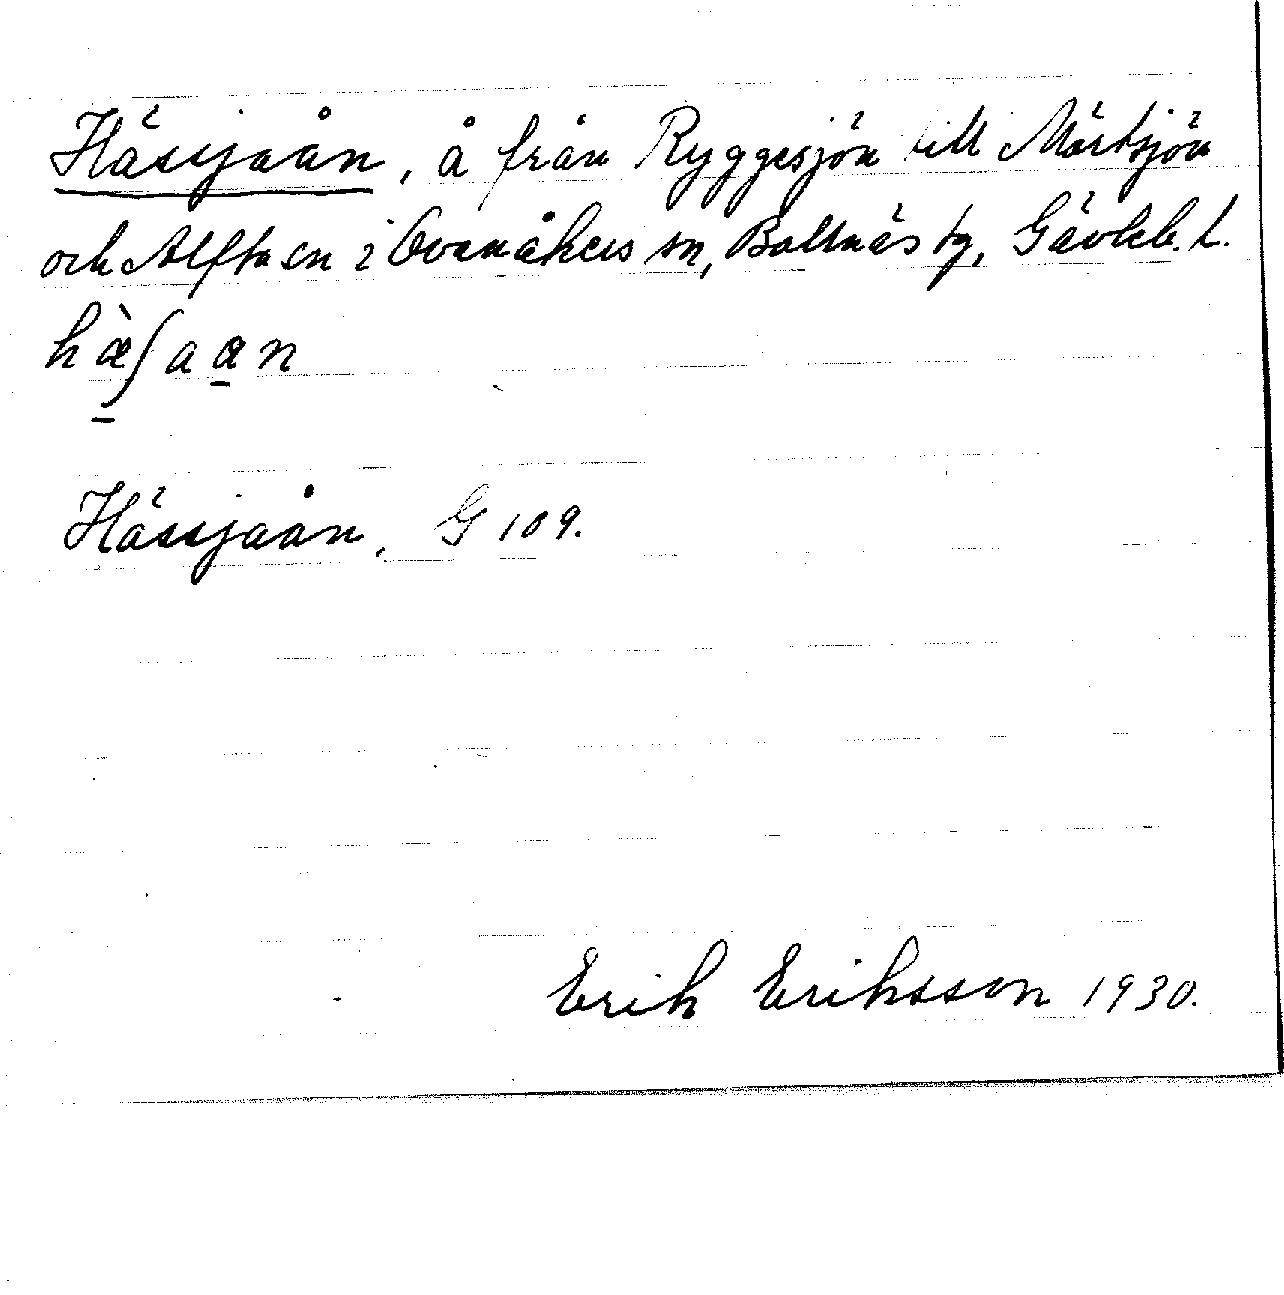 Hässjaån, å från Ryggesjön till Mörtsjön
och Alftaen i Ovanåkers sn, Bollnäs tg, Gävleb. l.
hæ̀ʃaan
Hässjaån, G 109.
Erik Eriksson 1930.